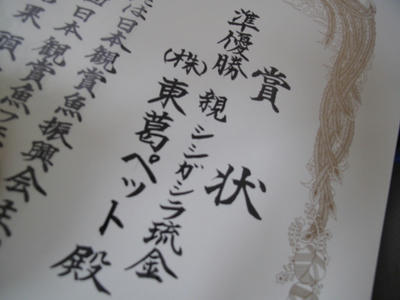 賞状
準優勝 親 シシガシラ琉金
(株)東葛ペット殿
は日本観賞魚振興会主
日本観賞魚フェ